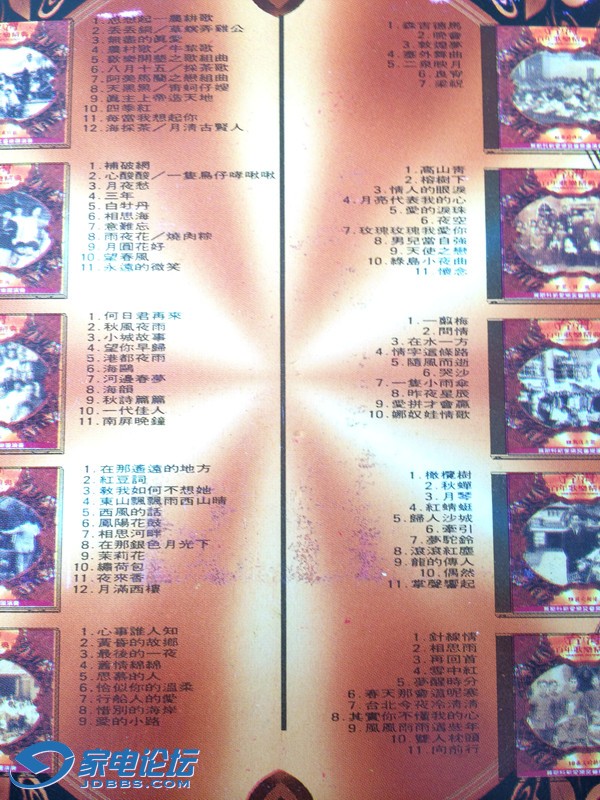 1. 思想起—農耕歌
2. 丟丟銅／草螟弄雞公
3. 無盡的真愛
4. 農村歌／牛犂歌
5. 歡樂開墾之歌組曲
6. 八月十五／採茶歌
7. 阿美馬蘭之戀組曲
8. 天黑黑／青蚵仔嫂
9. 真主上帝造天地
10. 四季紅
11. 每當我想起你
12. 海採茶／月清古賢人
1. 補破網
2. 心酸酸／一隻鳥仔哮啾啾
3. 月夜愁
4. 三年
5. 白牡丹
6. 相思海
7. 意難忘
8. 雨夜花／燒肉粽
9. 月圓花好
10. 望春風
11. 永遠的微笑
1. 何日君再來
2. 秋風夜雨
3. 小城故事
4. 望你早歸
5. 港都夜雨
6. 海鷗
7. 河邊春夢
8. 海韻
9. 秋詩篇篇
10. 一代佳人
11. 南屏晚鐘
1. 在那遙遠的地方
2. 紅豆詞
3. 教我如何不想她
4. 東山飄飄雨西山晴
5. 西風的話
6. 鳳陽花鼓
7. 相思河畔
8. 在那銀色月光下
9. 茉莉花
10. 繡荷包
11. 夜來香
12. 月滿西樓
1. 心事誰人知
2. 黃昏的故鄉
3. 最後的一夜
4. 舊情綿綿
5. 思慕的人
6. 恰似你的溫柔
7. 行船人的愛
8. 惜別的海岸
9. 愛的小路
1. 森吉德馬
2. 晚會
3. 敦煌夢
4. 塞外舞曲
5. 二泉映月
6. 良宵
7. 梁祝
1. 高山青
2. 榕樹下
3. 情人的眼淚
4. 月亮代表我的心
5. 愛的淚珠
6. 夜空
7. 玫瑰玫瑰我愛你
8. 男兒當自強
9. 天使之戀
10. 綠島小夜曲
11. 懷念
1. 一剪梅
2. 問情
3. 在水一方
4. 情字這條路
5. 隨風而逝
6. 哭沙
7. 一隻小雨傘
8. 昨夜星辰
9. 愛拼才會贏
10. 娜奴娃情歌
1. 橄欖樹
2. 秋蟬
3. 月琴
4. 紅蜻蜓
5. 歸人沙城
6. 牽引
7. 夢駝鈴
8. 滾滾紅塵
9. 龍的傳人
10. 偶然
11. 掌聲響起
1. 針線情
2. 相思雨
3. 再回首
4. 雪中紅
5. 夢醒時分
6. 春天那會這呢寒
7. 台北今夜冷清清
8. 其實你不懂我的心
9. 風風雨雨這些年
10. 雙人枕頭
11. 向前行
家电论坛
JDBBS.COM